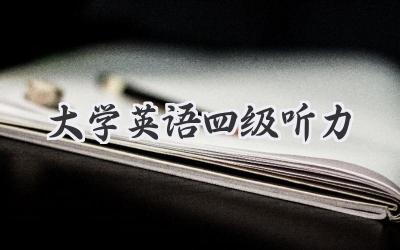 大学英语四级听力